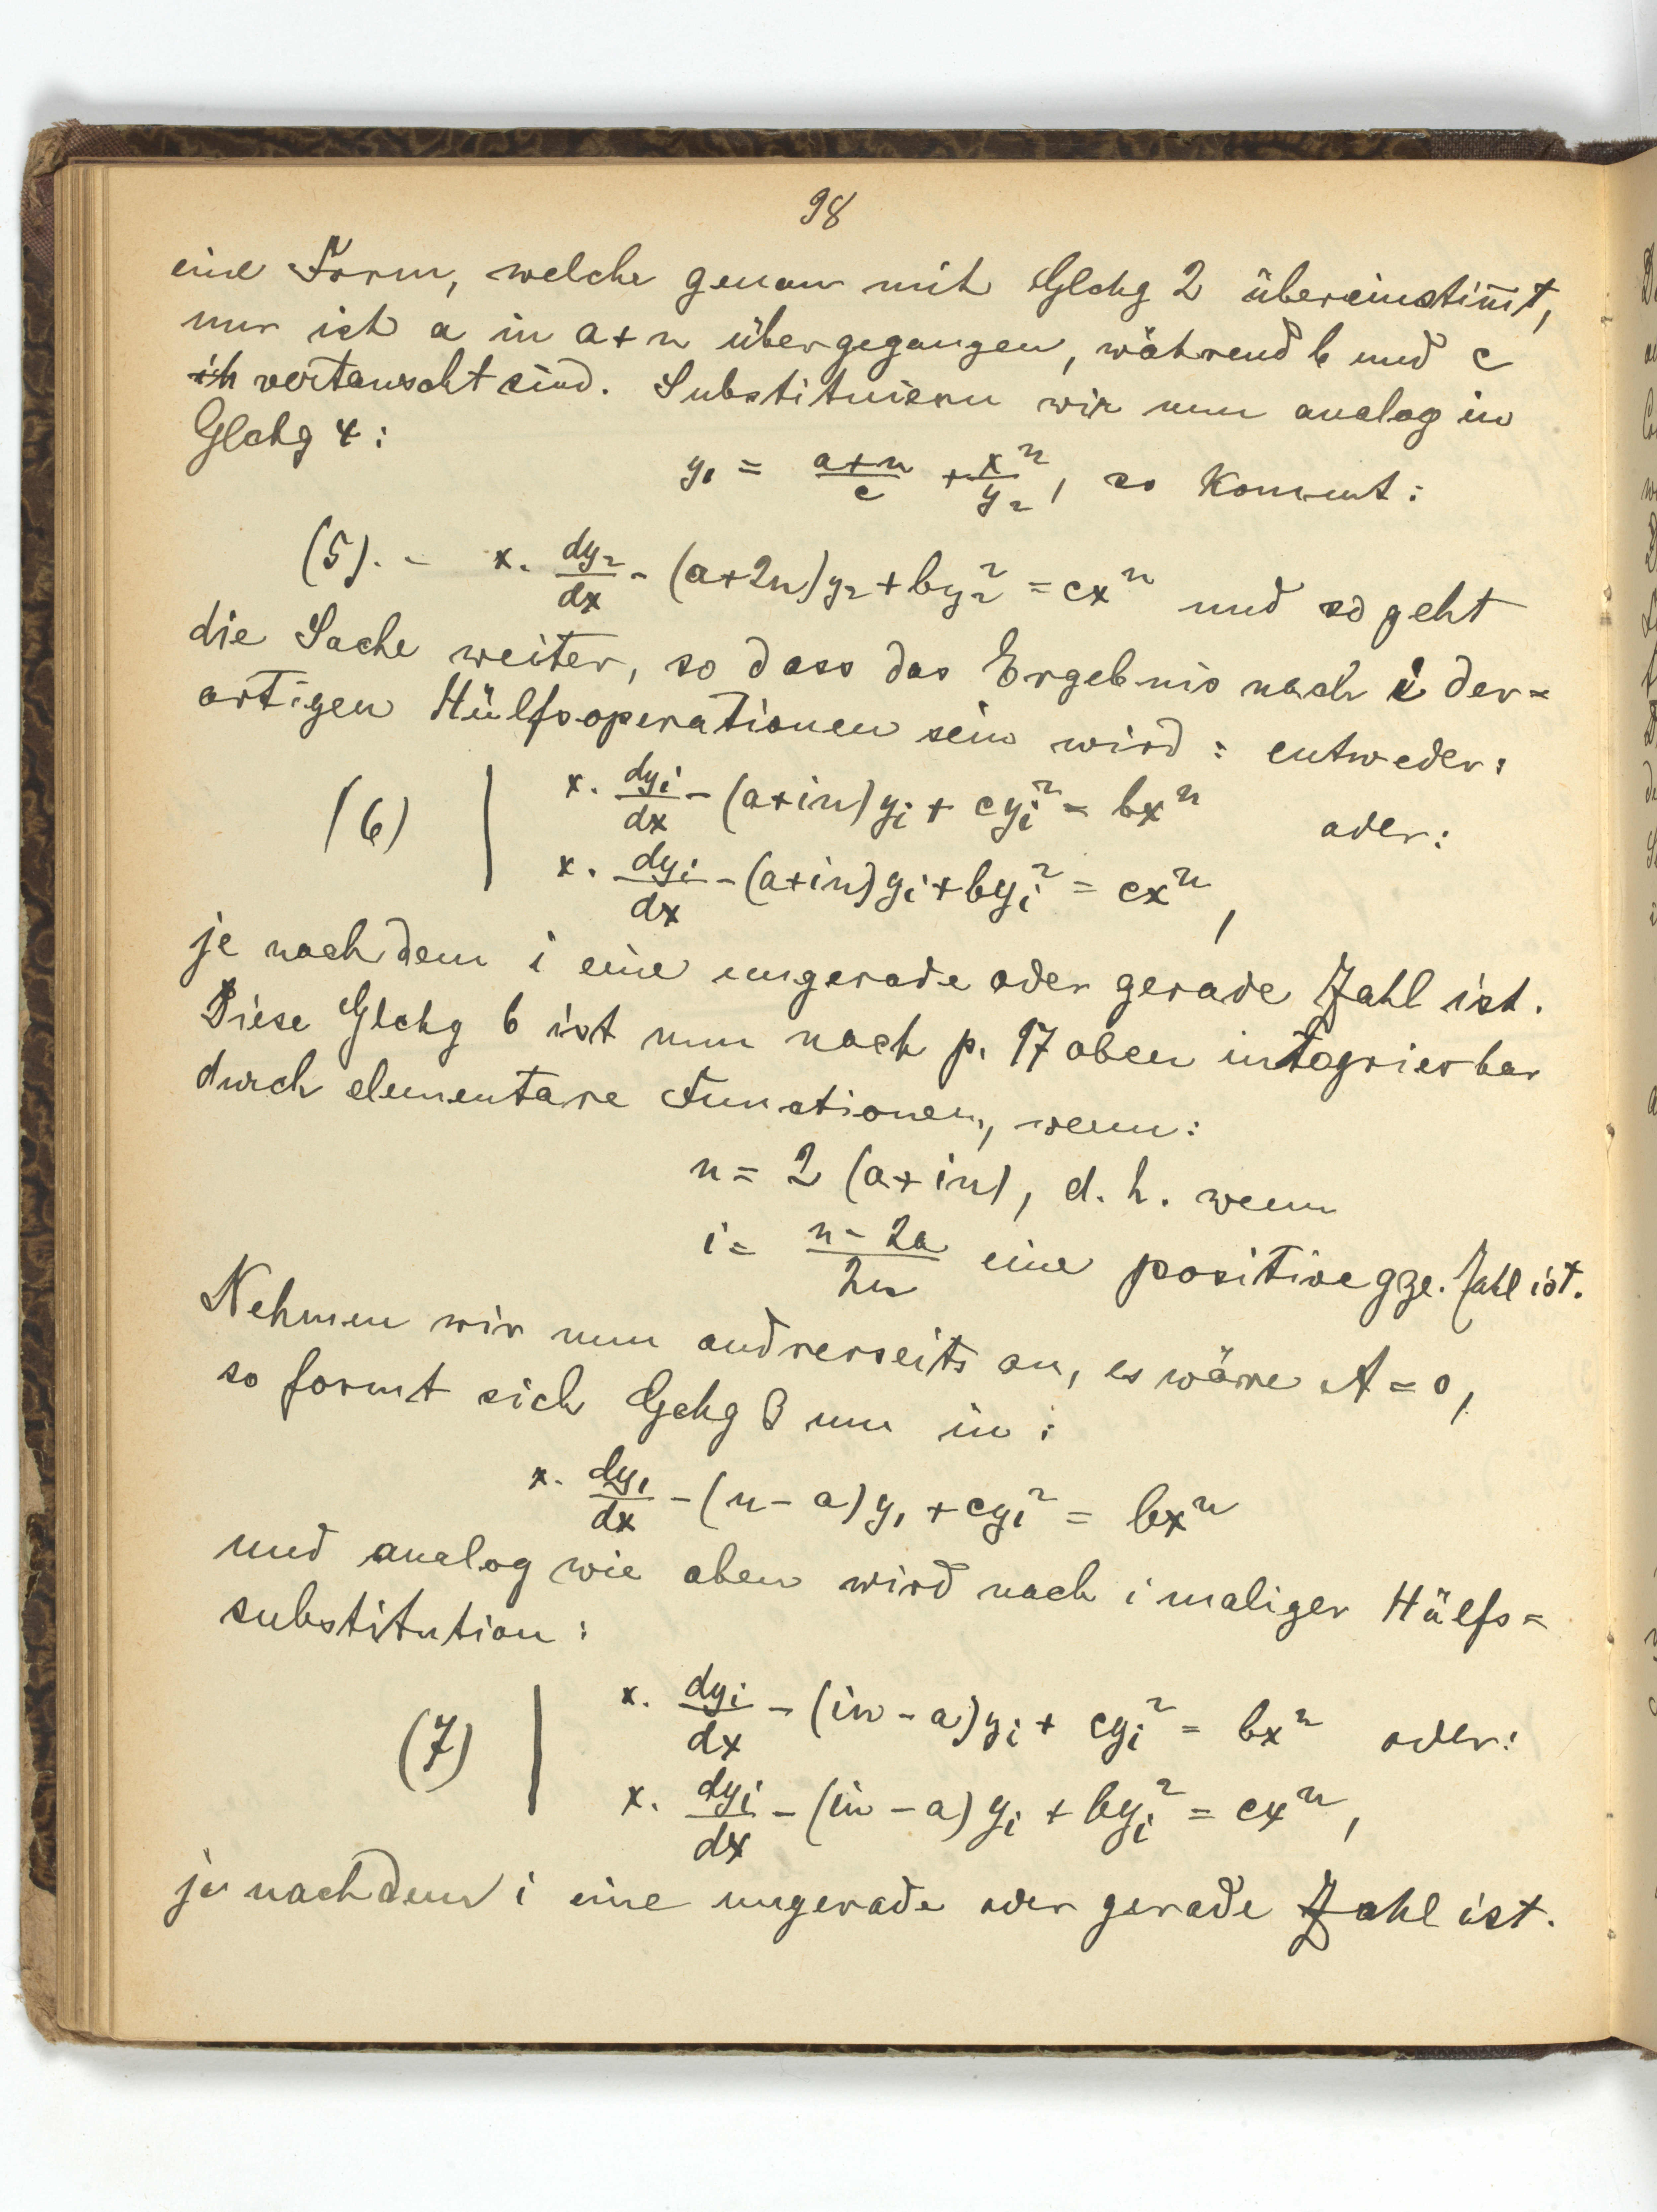 98
eine Form, welche genau mit Glchg 2 übereinstim̅t,
nur ist a in a+n übergegangen, während b und c
ih vertauscht sind. Substituieren wir nun analog in
Glchg 4:
y₁ = (a+n)/c + xⁿ/y₂, so kommt:
(5). - x. dy₂/dx - (a+2n)y₂ + by₂² = cxⁿ und so geht
die Sache weiter, so dass das Ergebnis nach i der=
artigen Hülfsoperationen sein wird: entweder:
(6) | x. dyᵢ/dx - (a+in)yᵢ + cyᵢ² = bxⁿ oder:
x. dyᵢ/dx - (a+in)yᵢ + byᵢ² = cxⁿ,
je nachdem i eine ungerade oder gerade Zahl ist.
Diese Glchg 6 ist nun nach p. 97 oben integrierbar
durch elementare Functionen, wenn:
n = 2 (a+in), d. h. wenn
i = (n-2a)/2n eine positive gze. Zahl ist.
Nehmen wir nun andrerseits an, es wäre A = 0,
so formt sich Gchg 3 um in:
x. dy₁/dx - (n-a)y₁ + cy₁² = bxⁿ
und analog wie oben wird nach i maliger Hülfs=
substitution:
(7) | x. dyᵢ/dx - (in-a)yᵢ + cyᵢ² = bxⁿ oder:
x. dyᵢ/dx - (in-a)yᵢ + byᵢ² = cxⁿ,
je nachdem i eine ungerade oder gerade Zahl ist.